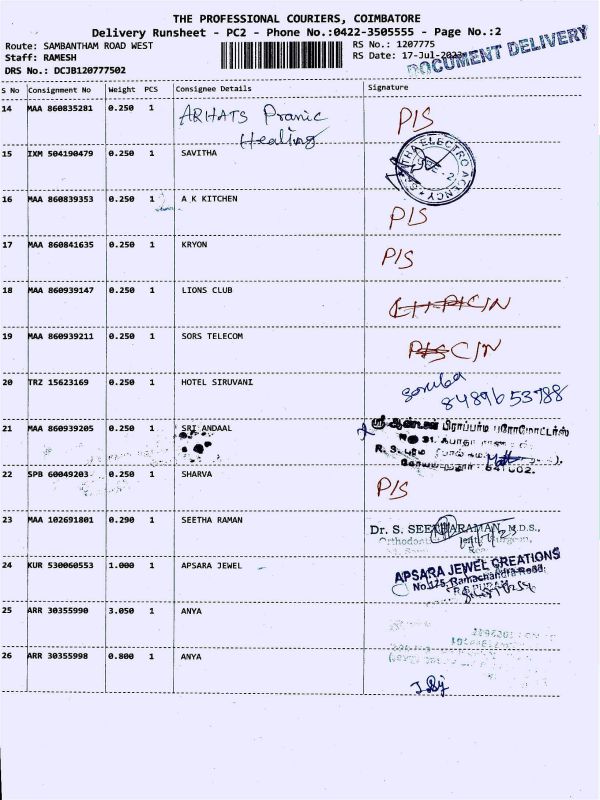 THE PROFESSIONAL COURIERS, COIMBATORE
Delivery Runsheet - PC2 - Phone No.:0422-3505555 - Page No.:2
Route: SAMBANTHAM ROAD WEST
RS No.: 1207775
Staff: RAMESH
RS Date: 17-Jul-2023
DOCUMENT DELIVERY
DRS No.: DCJB120777502
S No Consignment No Weight PCS Consignee Details Signature
14 MAA 860835281 0.250 1 ARHATS Pranic Healing PIS
15 IXM 504190479 0.250 1 SAVITHA
ELECTRO AGENCY
16 MAA 860839353 0.250 1 A K KITCHEN PIS
17 MAA 860841635 0.250 1 KRYON PIS
18 MAA 860939147 0.250 1 LIONS CLUB
19 MAA 860939211 0.250 1 SORS TELECOM PIS CIN
20 TRZ 15623169 0.250 1 HOTEL SIRUVANI
8489653788
21 MAA 860939205 0.250 1 SRI ANDAAL
பிராப்பர்டி புரோமோட்டர்ஸ்
22 SPB 60049203 0.250 1 SHARVA PIS
23 MAA 102691801 0.290 1 SEETHA RAMAN
Dr. S. SEETHARAMAN, M.D.S.,
24 KUR 530060553 1.000 1 APSARA JEWEL
APSARA JEWEL CREATIONS
No.125, Ramachandra Road,
25 ARR 30355990 3.050 1 ANYA
26 ARR 30355998 0.800 1 ANYA